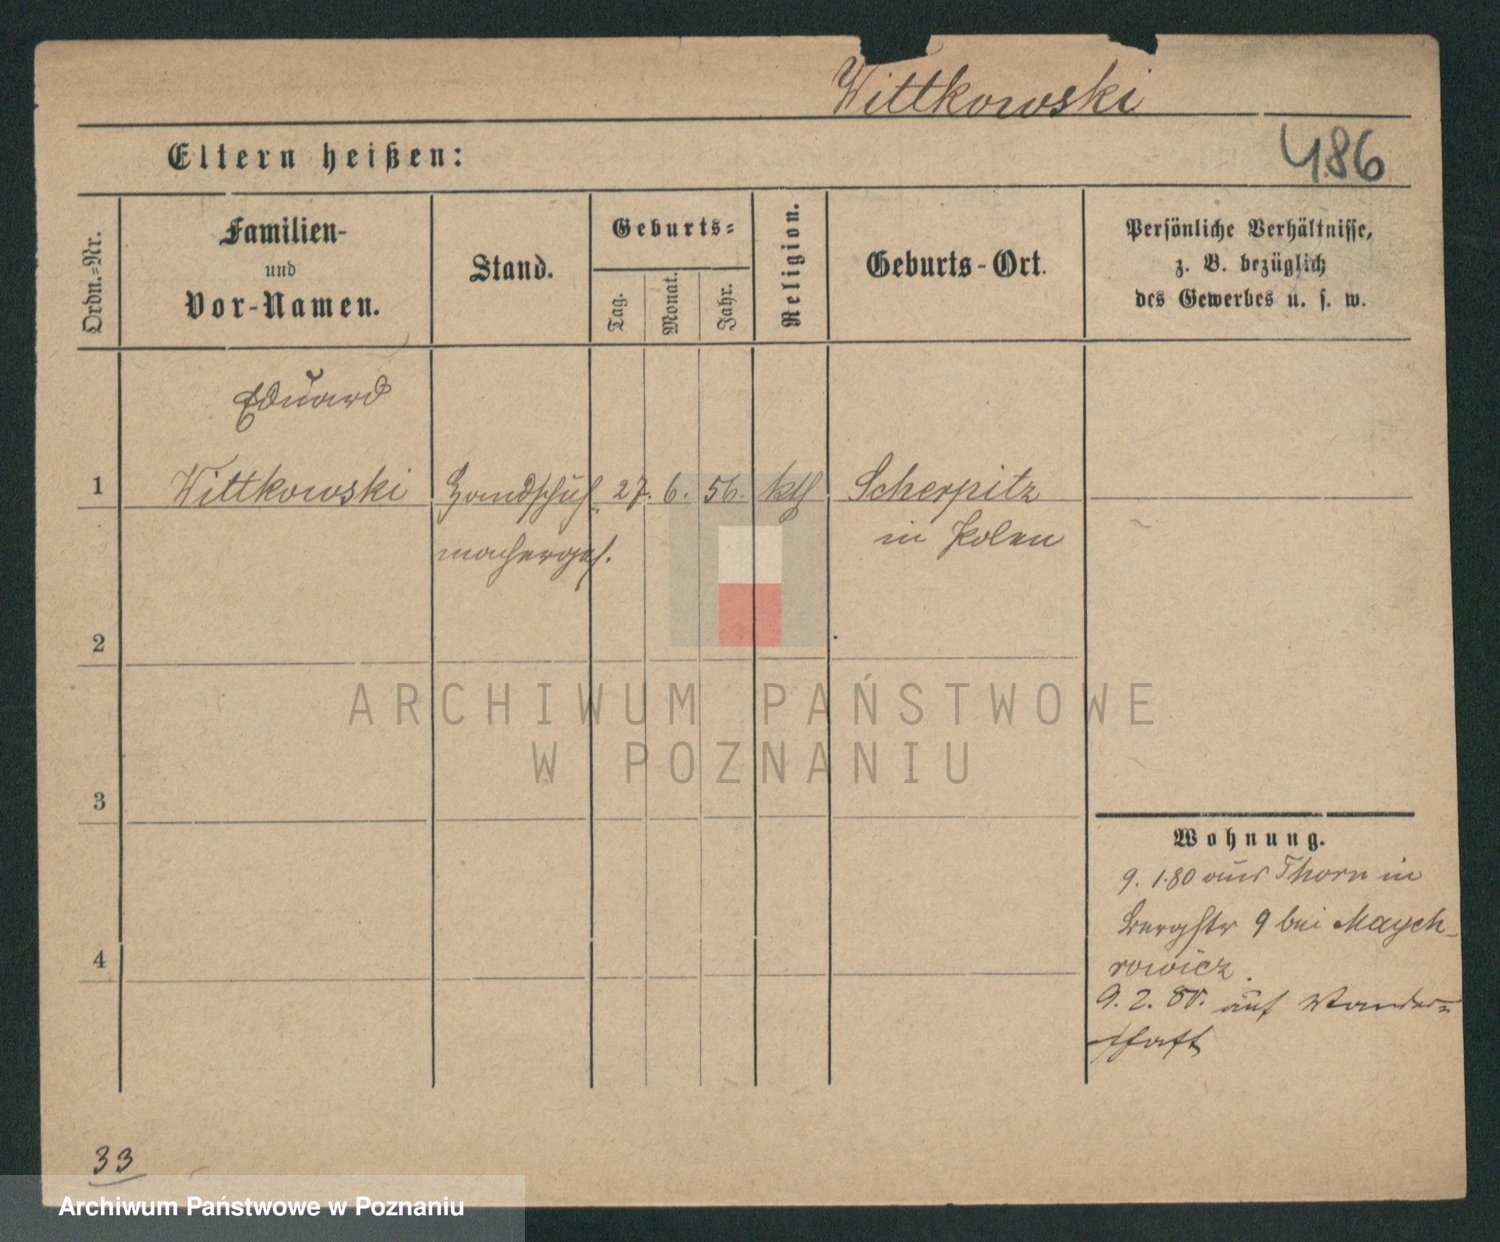 Wittkowski
Eltern heißen:
486
Ordn.=Nr.
Familien-
und
Vor-Namen.
Stand.
Geburts=
Tag.
Monat.
Jahr.
Religion.
Geburts-Ort.
Persönliche Verhältnisse,
z. B. bezüglich
des Gewerbes u. s. w.
Eduard
1 Wittkowski Handschuh 27. 6. 56. kth Scherpitz
machergeh. in Polen
2
3
4
Wohnung.
9. 1.80 aus Thorn in
Bergstr 9 bei Maych-
rowicz.
9. 2. 80. auf Wander=
schaft
33
ARCHIWUM PAŃSTWOWE
W POZNANIU
Archiwum Państwowe w Poznaniu